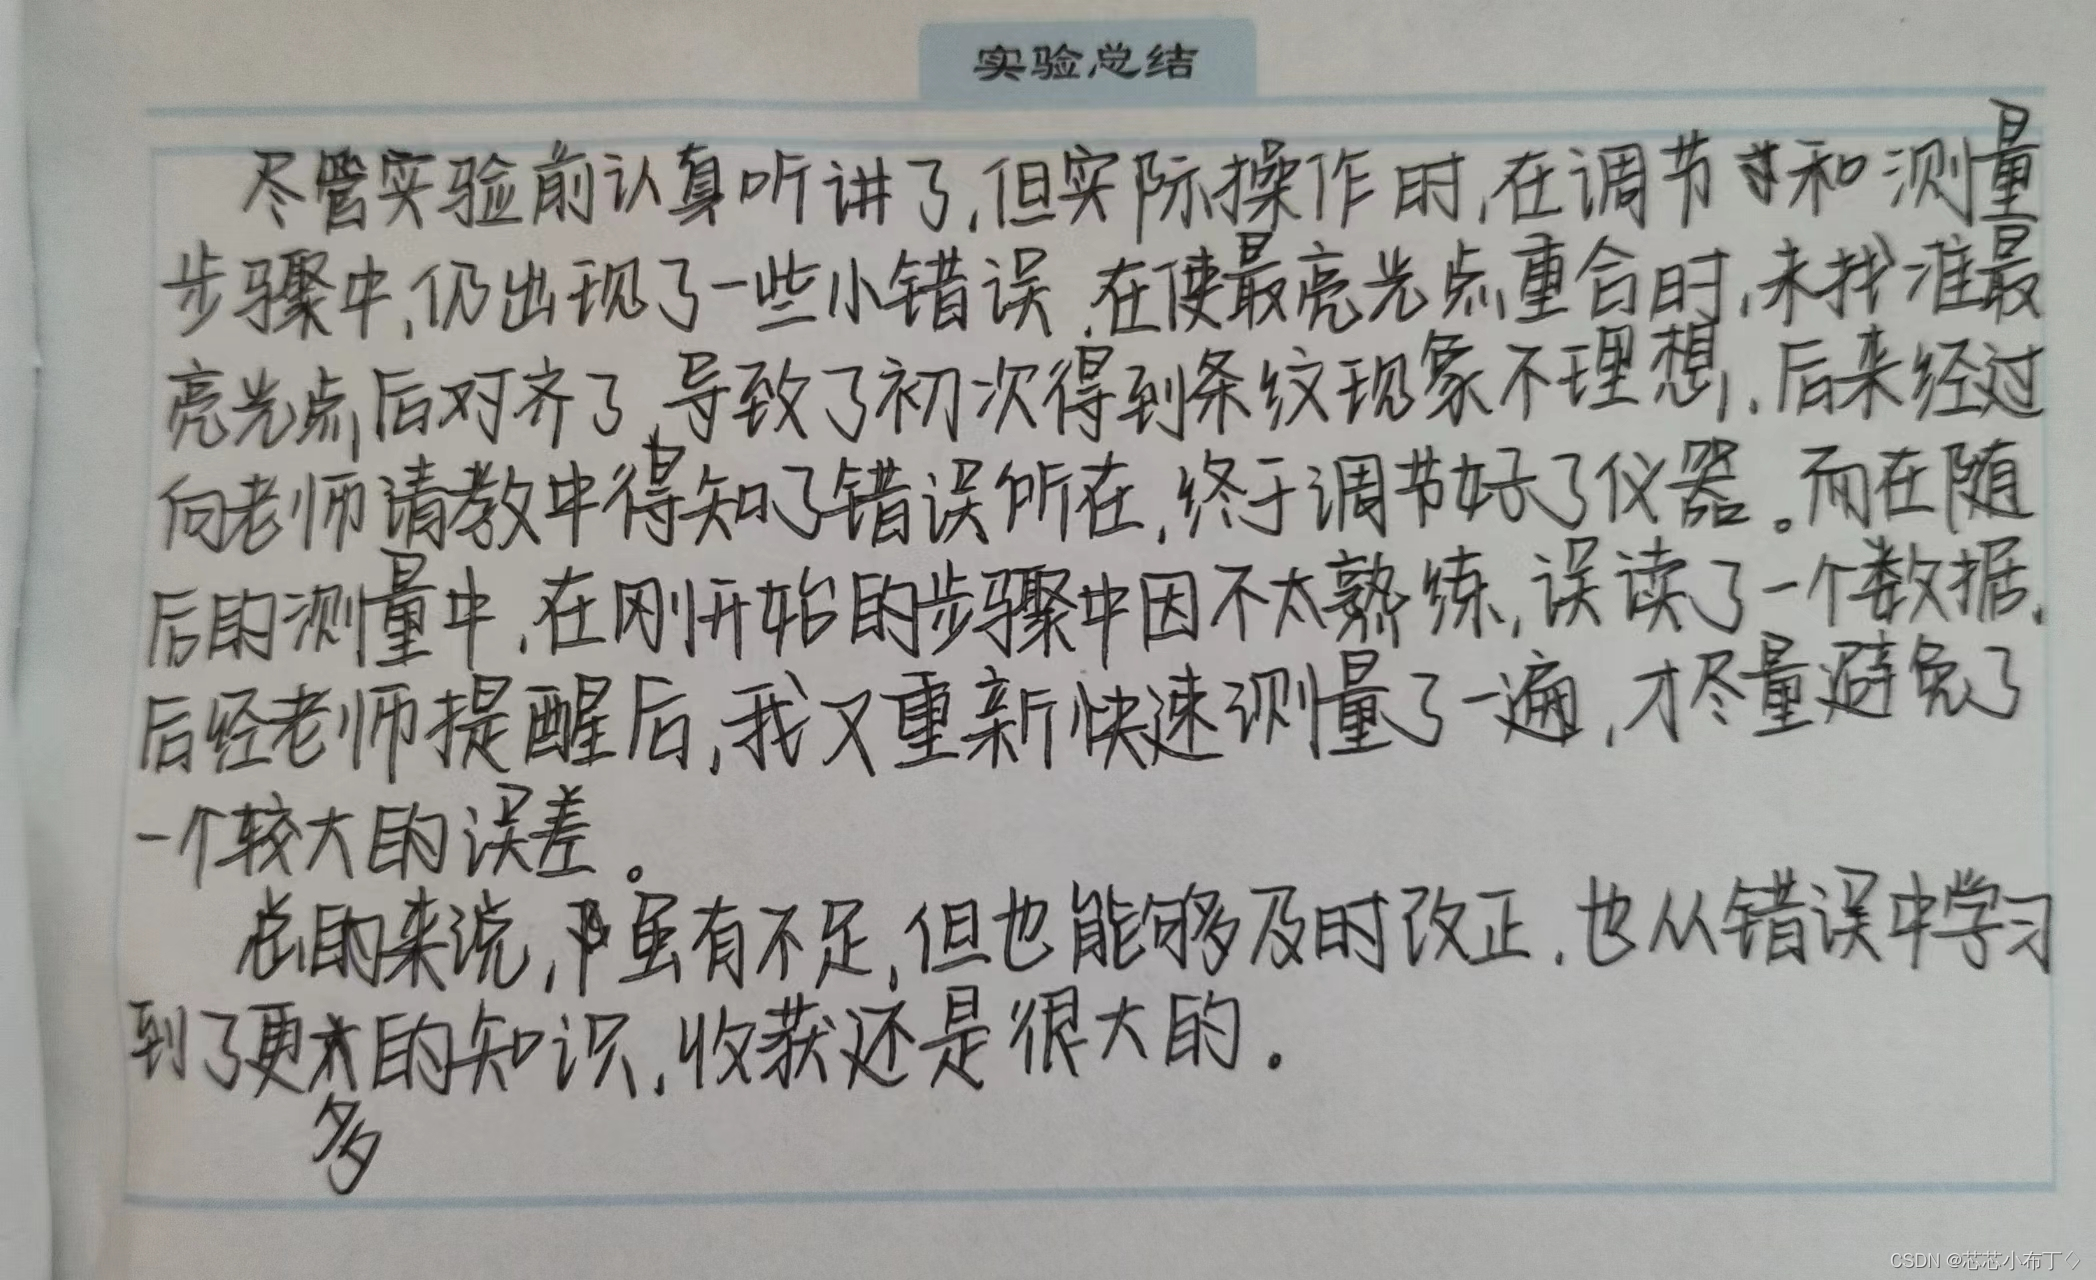 实验总结
尽管实验前认真听讲了,但实际操作时,在调节和测量
步骤中,仍出现了一些小错误.在使最亮光点重合时,未找准最
亮光点后对齐了,导致了初次得到条纹现象不理想,.后来经过
向老师请教中得知了错误所在,终于调节好了仪器。而在随
后的测量中,在刚开始的步骤中因不太熟练,误读了一个数据,
后经老师提醒后,我又重新快速测量了一遍,才尽量避免了
一个较大的误差。
总的来说,虽有不足,但也能够及时改正.也从错误中学习
到了更多的知识,收获还是很大的.
CSDN @芯芯小布丁◇